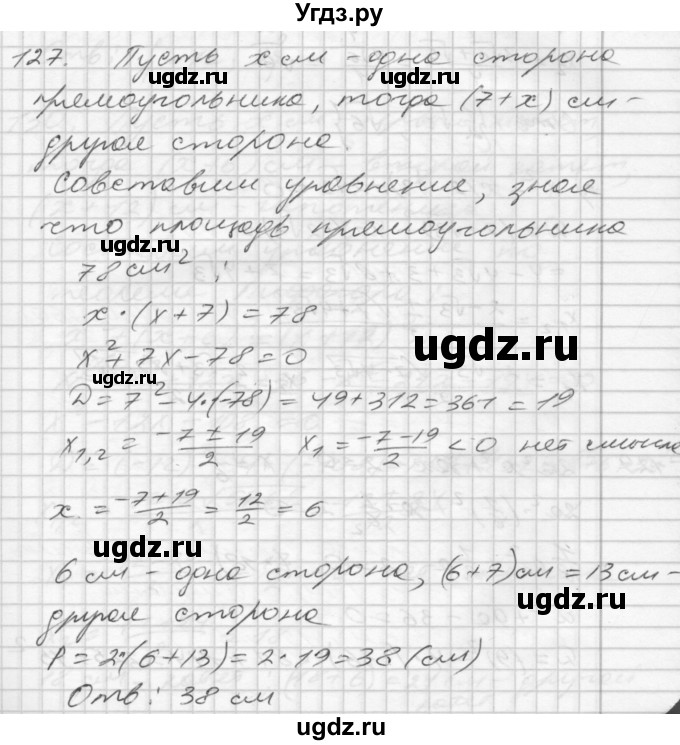 Угдз.ру
127. Пусть x см - одна сторона
ugdz.ru ugdz.ru
прямоугольника, тогда (7+x) см -
другая сторона.
ugdz.ru
Совставим уравнение, зная
что площадь прямоугольника
ugdz.ru
78 см² ;
x·(x+7) = 78
ugdz.ru
x² + 7x - 78 = 0
D = 7² - 4·(-78) = 49 + 312 = 361 = 19
x₁,₂ = (-7 ± 19)/2 x₁ = (-7-19)/2 < 0 нет смысла
x = (-7+19)/2 = 12/2 = 6
ugdz.ru
6 см - одна сторона, (6+7) см = 13 см -
ugdz.ru
другая сторона
P = 2·(6+13) = 2·19 = 38 (см)
ugdz.ru
Отв: 38 см
ugdz.ru